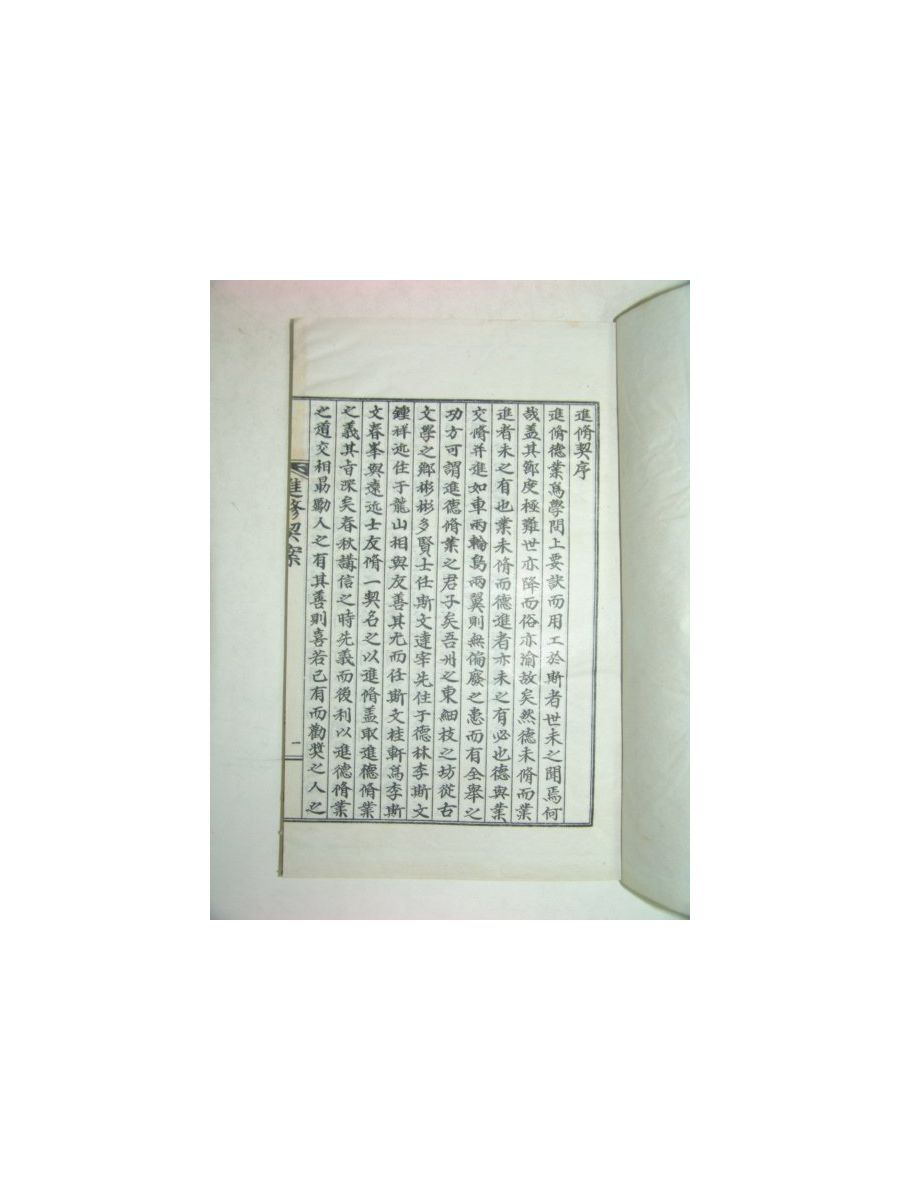 進脩契序
進脩德業爲學問上要訣而用工於斯者世未之聞焉何
哉盖其節度極難世亦降而俗亦渝故矣然德未脩而業
進者未之有也業未脩而德進者亦未之有必也德與業
交脩并進如車兩輪鳥兩翼則無偏廢之患而有全舉之
功方可謂進德脩業之君子矣吾州之東細枝之坊從古
文學之鄕彬彬多賢士任斯文達宰先住于德林李斯文
鍾祥迹住于龍山相與友善其尤而任斯文桂軒爲李斯
文春峯與遠近士友脩一契名之以進脩盖取進德脩業
之義其旨深矣春秋講信之時先義而後利以進德脩業
之道交相勗勵人之有其善則喜若己有而勸奬之人之
進修契案
一